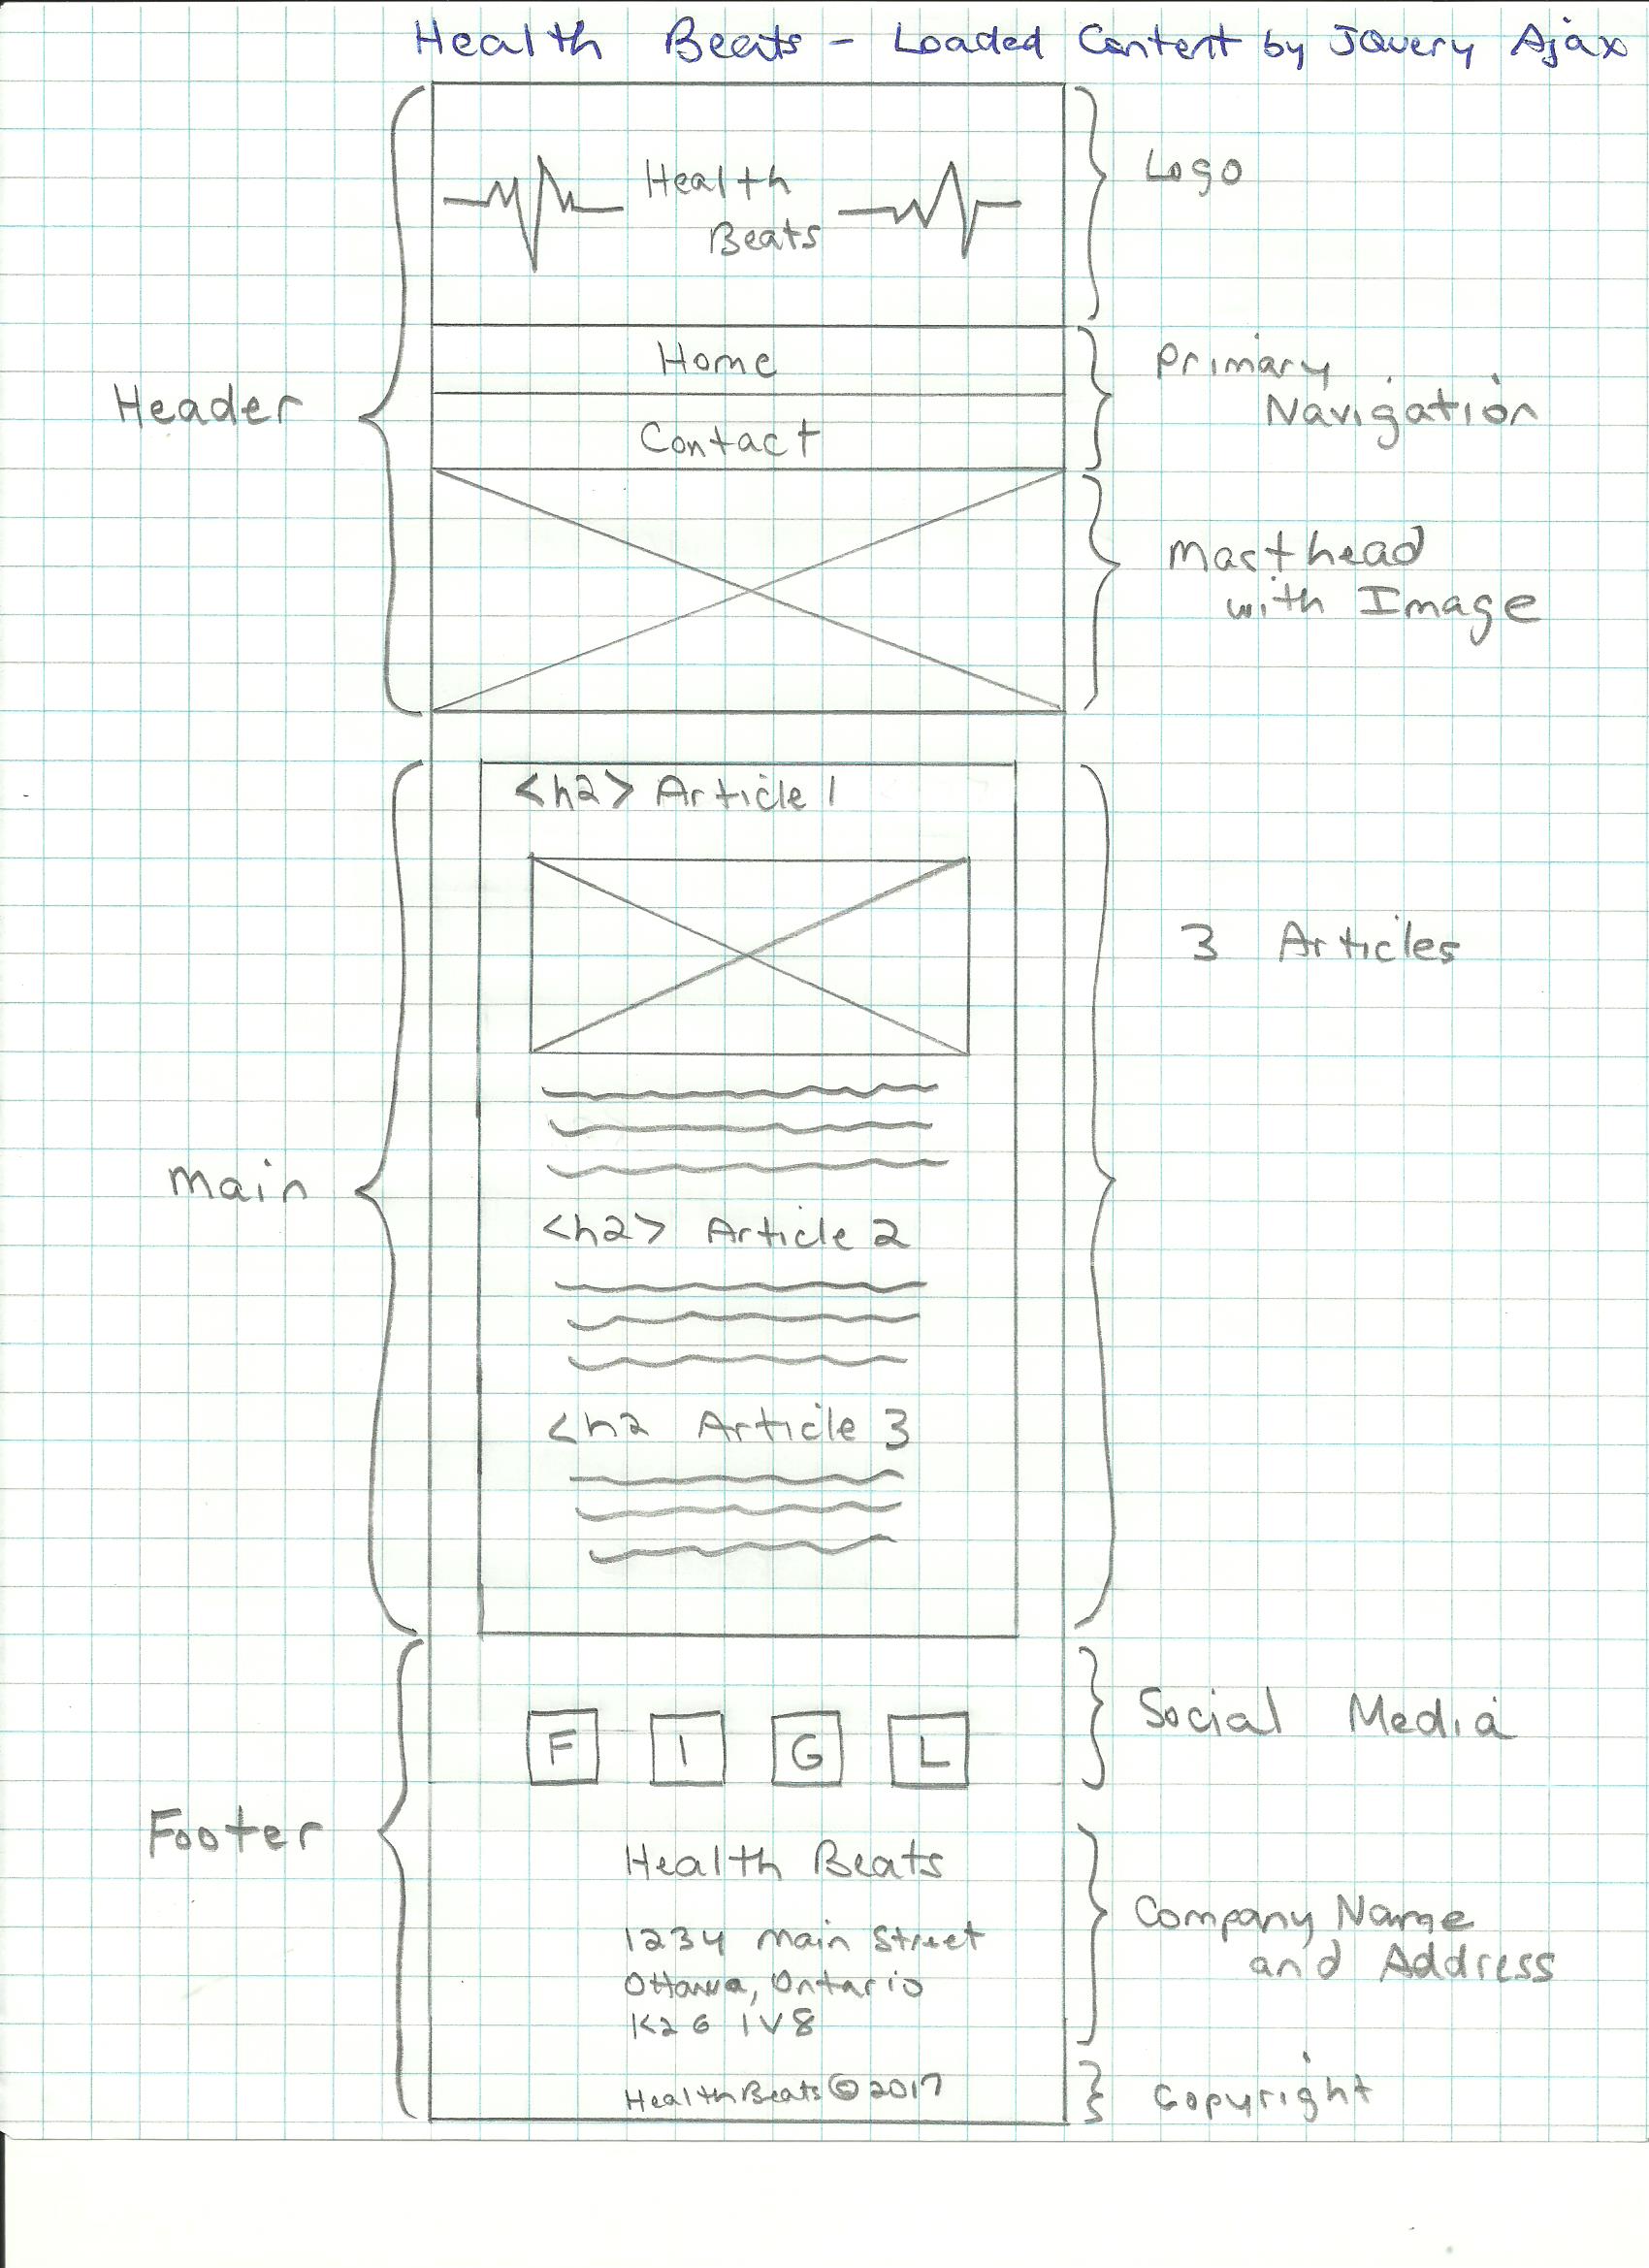 Health Beats - Loaded Content by JQuery Ajax
Health
Beats
Logo
Home
Contact
Primary
Navigation
Header
Masthead
with Image
<h2> Article 1
3 Articles
Main
<h2> Article 2
<h2 Article 3
F I G L
Social Media
Footer
Health Beats
1234 Main Street
Ottawa, Ontario
K2G 1V8
Company Name
and Address
HealthBeats © 2017
Copyright